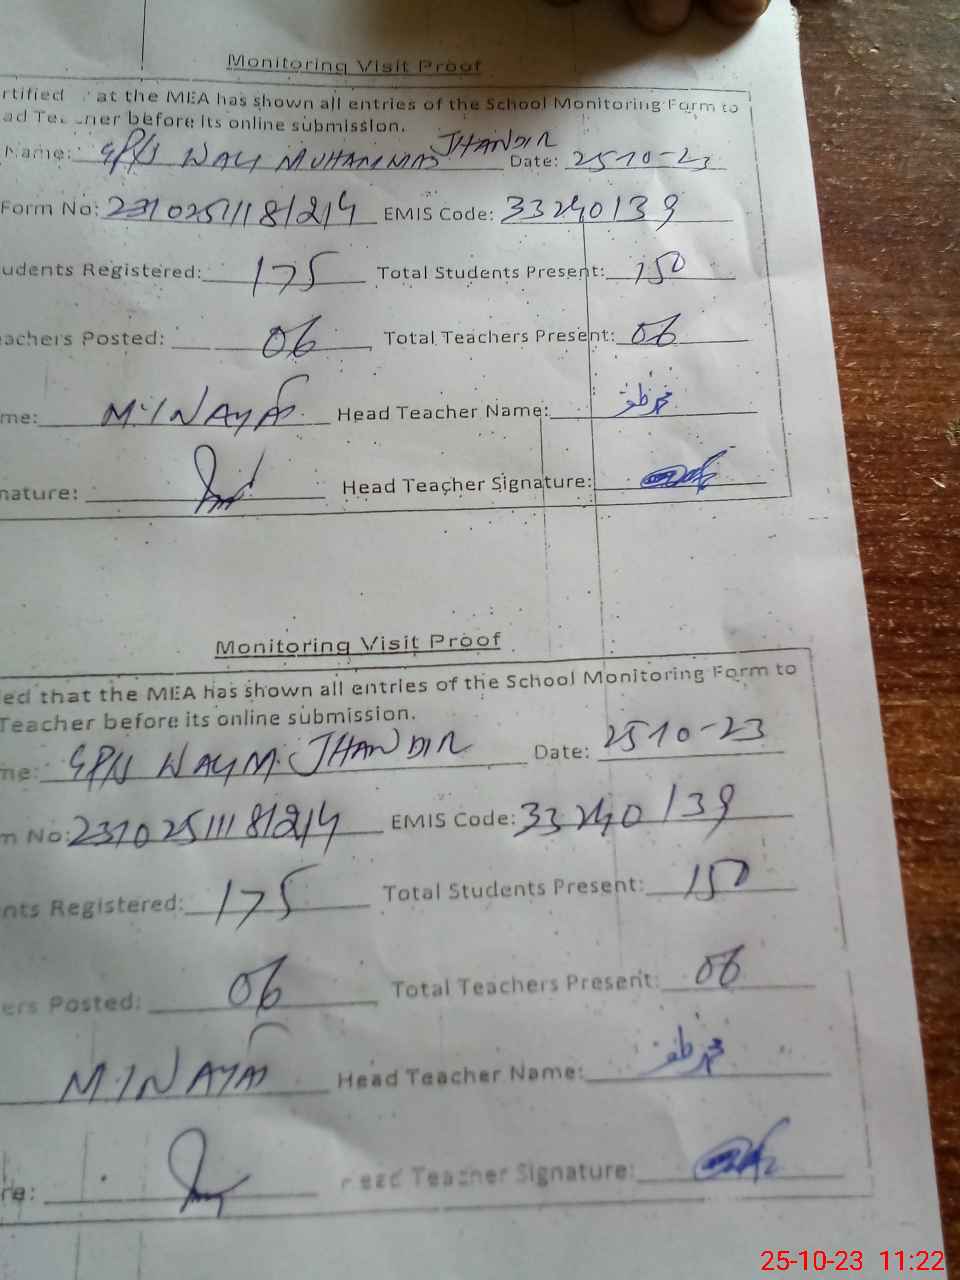 Monitoring Visit Proof
rtified at the MEA has shown all entries of the School Monitoring Form to
ad Te ner before its online submission.
Name: GPS WALI MUHAMMAD JHANDIR Date: 25-10-23
Form No: 23102511181214 EMIS Code: 33240139
udents Registered: 175 Total Students Present: 150
eachers Posted: 06 Total Teachers Present: 06
me: M. INAYAT Head Teacher Name:
nature: Head Teacher Signature:
Monitoring Visit Proof
ed that the MEA has shown all entries of the School Monitoring Form to
Teacher before its online submission.
me: GPS WALI M. JHANDIR Date: 25-10-23
m No: 23102511181214 EMIS Code: 33240139
nts Registered: 175 Total Students Present: 150
ers Posted: 06 Total Teachers Present: 06
M. INAYAT Head Teacher Name:
re: Head Teacher Signature:
25-10-23 11:22